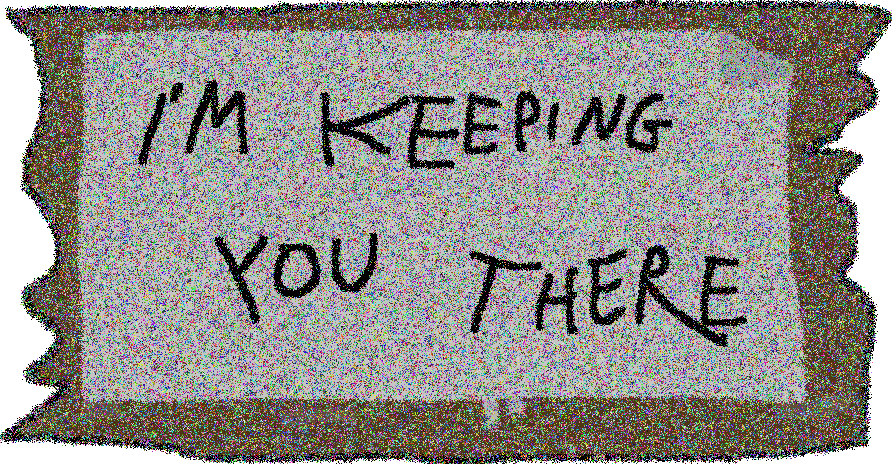 I'M KEEPING
YOU THERE